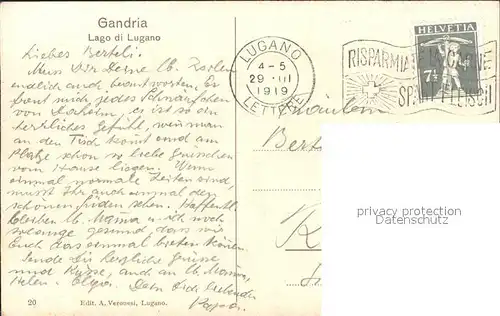 Gandria
Lago di Lugano
Liebes Berteli.
Muss Dir Deine lb. Zeilen
endlich auch beantworten. Es
freut mich jedes
von Daheim, es ist so ein
herrliches Gefühl, wenn man
an den Tisch kommt und am
Platze schon so liebe Grüsschen
vom Hause liegen. Wenn
einmal normale Zeiten sind,
müsst Ihr auch einmal den
schönen Süden sehen. Hoffentl.
bleiben lb. Mama u. ich noch
solange gesund, dass wir
Euch das einmal bieten können.
Sende Dir herzliche Grüsse
und Küsse, auch an lb. Mama,
Helen, Olga. Dein Dich liebender
Papa.
LUGANO
4-5
29 III
1919
LETTERE
RISPARMIATE
SPART FLEISCH
HELVETIA
7½
Fräulein
Bert
K
privacy protection
Datenschutz
20 Edit. A. Veronesi, Lugano.